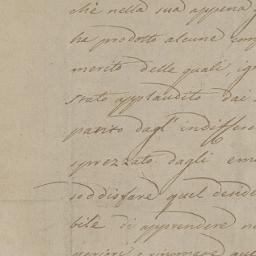 chè nella sua appena
ha prodotto alcune comp
merito delle quali, ign
stato applaudito dai
patito dagl' indiffere
sprezzato dagli em
soddisfare quel deside
bile di apprendere n